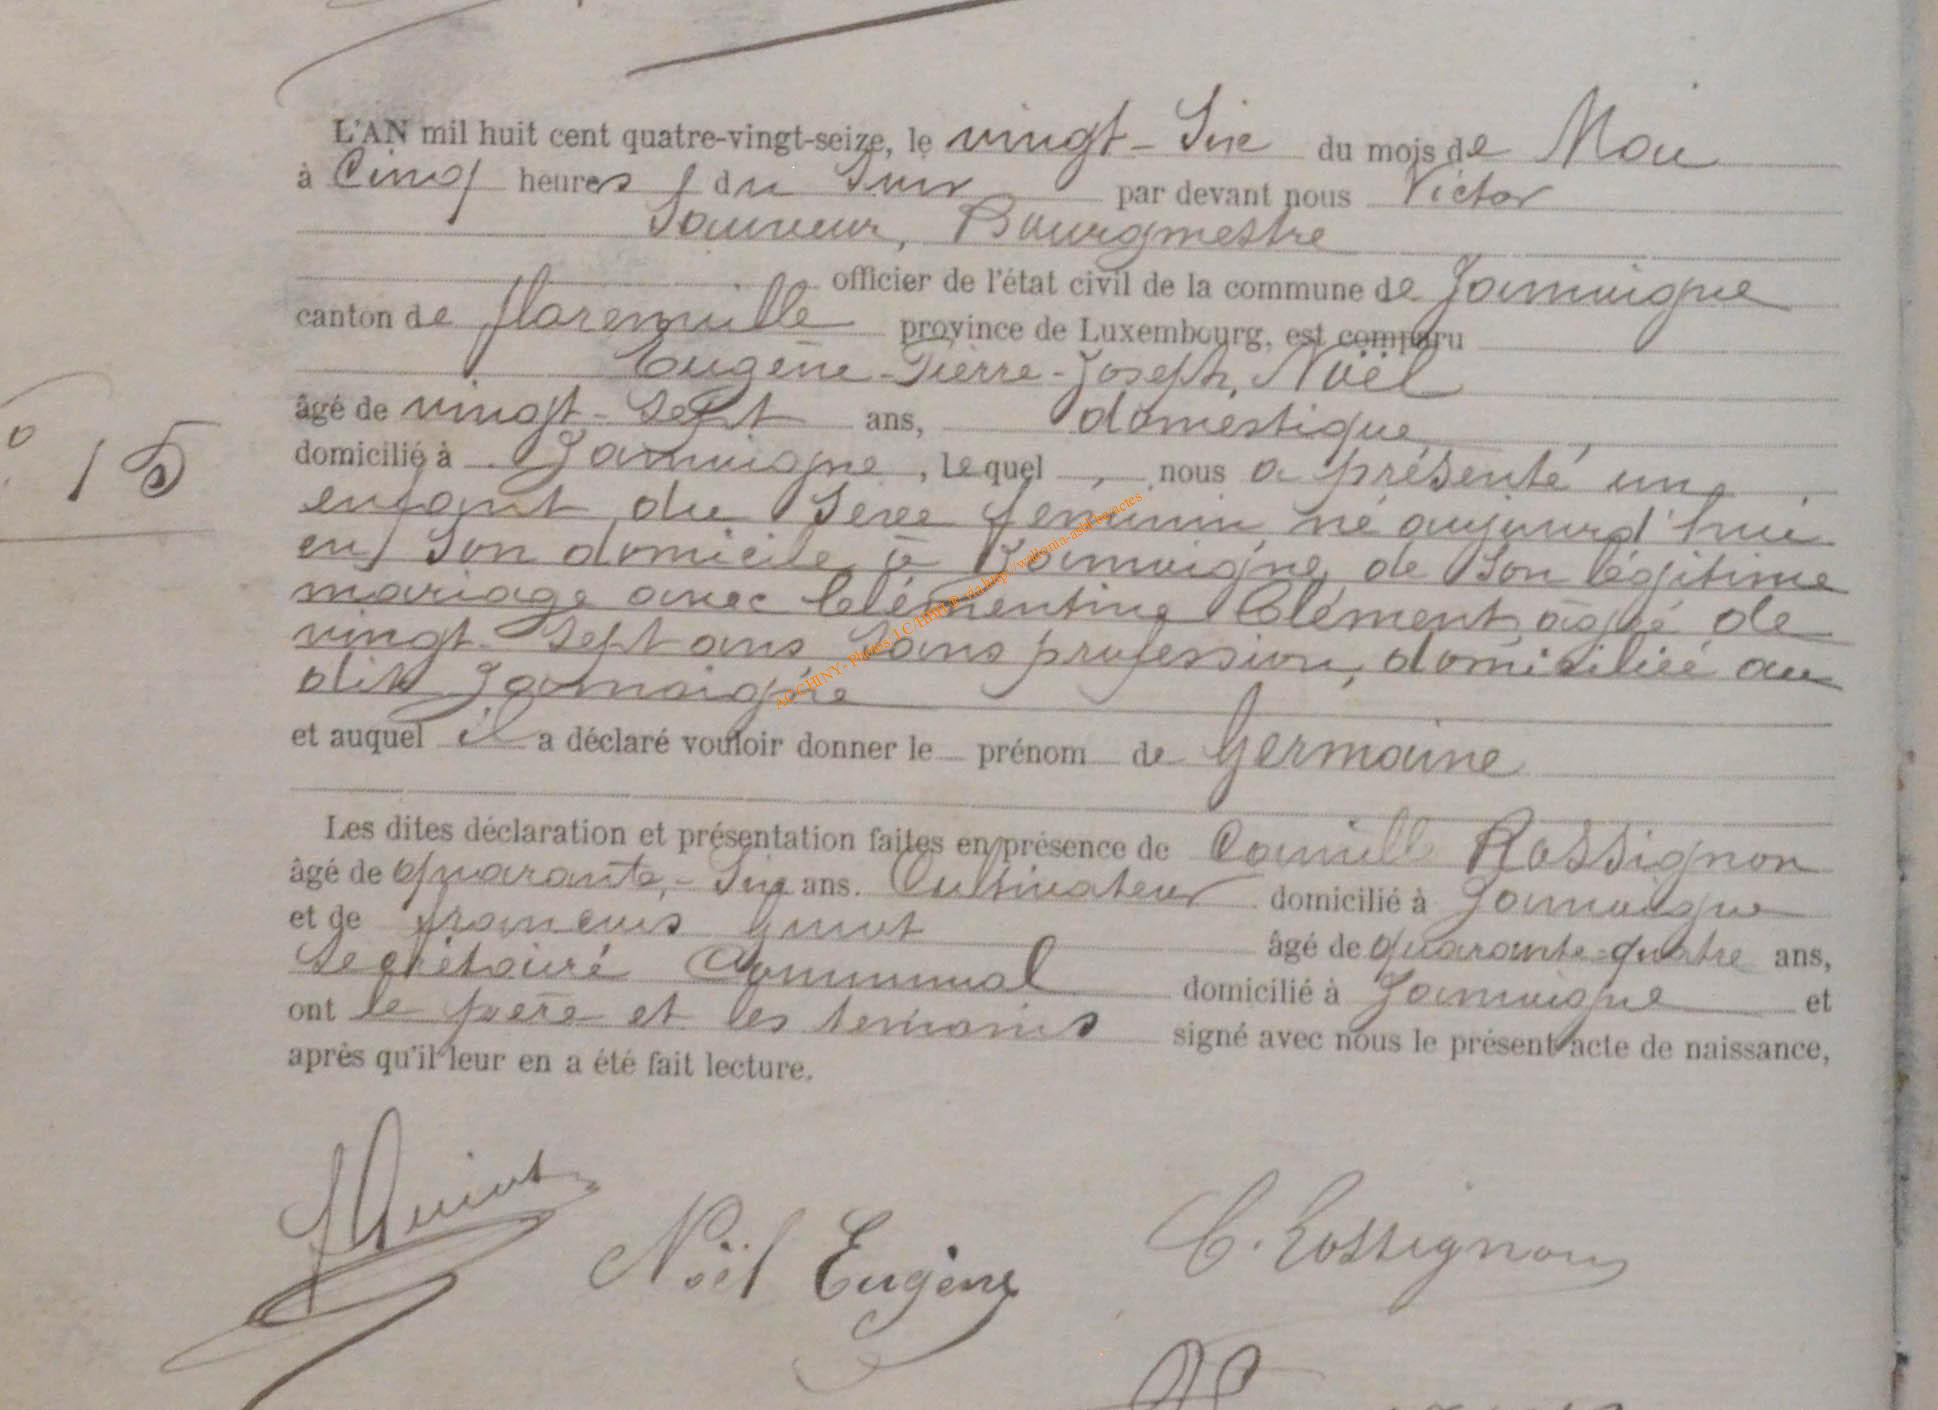 L'AN mil huit cent quatre-vingt-seize, le vingt-Six du mois de Mai
à Cinq heures du Soir par devant nous Victor
Sauveur, Bourgmestre
officier de l'état civil de la commune de Jamoigne
canton de florenville province de Luxembourg, est comparu
Eugène-Pierre-Joseph, Noël
âgé de vingt-Sept ans, domestique
domicilié à Jamoigne, lequel, nous a présenté un
N° 15
enfant du Sexe féminin, né aujourd'hui
en Son domicile, à Jamoigne, de Son légitime
mariage avec Clémentine Clément, âgée de
vingt-Sept ans Sans profession, domiciliée au
dit Jamoigne
et auquel il a déclaré vouloir donner le prénom de Germaine
Les dites déclaration et présentation faites en présence de Camille Rossignon
âgé de quarante-Six ans. Cultivateur domicilié à Jamoigne
et de françois Guiot âgé de quarante-quatre ans,
Secrétaire Communal domicilié à Jamoigne et
ont le père et les témoins signé avec nous le présent acte de naissance,
après qu'il leur en a été fait lecture.
AC CHINY- Photos LC HBLLP via http://wallonia-asbl.be/actes
J Guiot
Noël Eugène
C. Rossignon